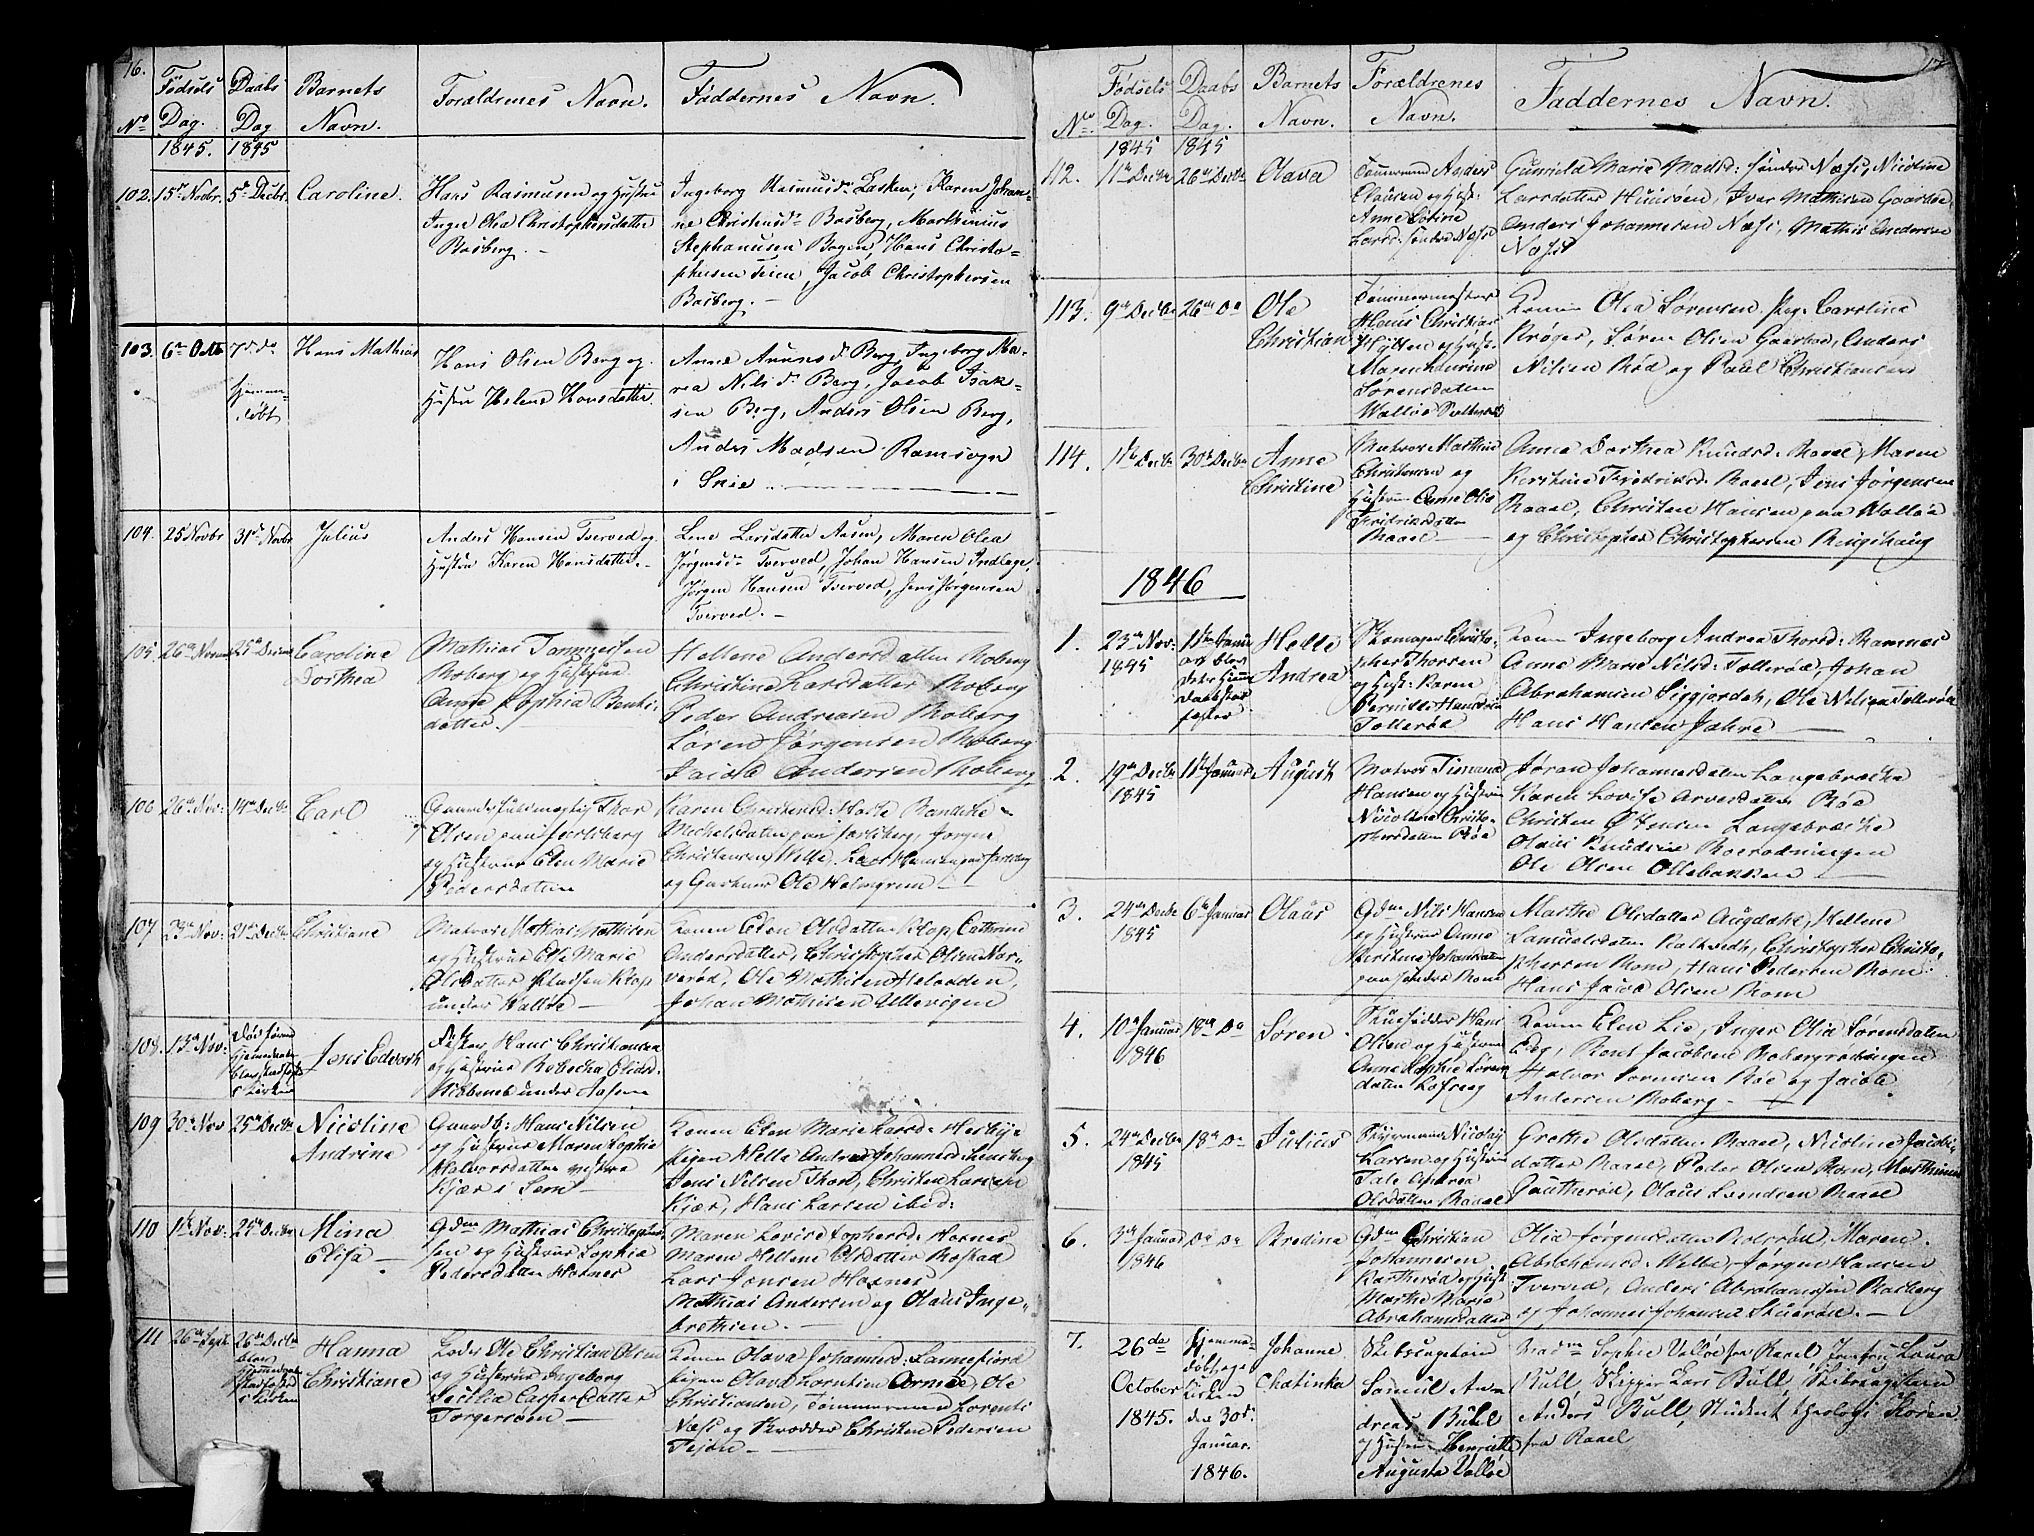 16.
No
Fødsels
Dag.
Daabs
Dag
Barnets
Navn.
Forældrenes Navn.
Faddernes Navn.
1845. 1845
102. 15de Novbr. 5te Decbr. Caroline.
Hans Rasmusen og Hustru
Inger Olea Christophersdatter
Basberg. -
Ingeborg Rasmusdr Lasken, Karen Johan-
ne Christensdr Basberg, Marthinius
Stephanusen Bogen, Hans Christo-
phersen Teien, Jacob Christophersen
Basberg. -
103. 6te Octb 7de do
Hjemme-
døbt
Hans Mathias
Hans Olsen Berg og
Hustru Helene Hansdatter.
Anne Ananisdr Berg, Ingeborg Ma-
rea Nilsdr Berg, Jacob Isak-
sen Berg, Anders Olsen Berg,
Anders Madsen Ramsogn
i Snie
104. 25 Novbr 31te Novbr Julius
Anders Hansen Tverved og
Hustru Karen Hansdatter. -
Lene Larsdatter Aasen, Maren Olea
Jørgensdr Tverved, Johan Hansen Indlage,
Jørgen Hansen Tverved, Jens Jørgensen
Tverved. -
105. 26de Novem 25de Decem
Caroline
Dorthea
Mathias Tommesen
Roberg og Hustrue
Anne Sophia Bents-
datter.
Hellene Andersdatter Roberg
Christine Larsdatter Roberg
Peder Andreasen Roberg
Søren Jørgensen Roberg
Jacob Andersen Roberg
106 26de Nov: 14de Decbr Carl
Gaardsfuldmægtig Thor
Olsen paa Jarlsberg
og Hustrue Elen Marie
Pedersdatter
Karen Christensd: Holte Randine
Michelsdatter paa Jarlsberg, Jørgen
Christensen Velle, Lars Hansen paa Jarlsberg
og Gartner Ole Holmgren -
107 23de Nov: 21de Decbr Christiane
Matros Mathias Mathisen
og Hustrue Ele Marie
Olsdatter Knudsen Klop
under Valløe -
Konen Elen Olsdatter Klop, Cathrine
Andersdatter, Christopher Olsen Nar-
verød, Ole Mathisen Helaaden,
Johan Mathisen Ullevigen
108. 13de Nov:
i Kirken
Jens Edvardt
Hans Christiansen
og Hustrue Rebecka Elisd:
under Aasen
109 30te Nov 25de Decbr Nicoline
Andrine
Gaardb: Hans Nilsen
og Hustrue Maren Sophie
Halvorsdatter vestre
Kjær i Sem -
Konen Elen Marie Larsd: Hesbye
Pigen Helle Andrea Johannesd:
Jens Nilsen Thon, Christen Larsen
Kjær, Hans Larsen ibid:
110 11te Nov: 25de Decbr Mina
Elisa -
Gdm Mathias Christopher-
sen og Hustrue Sophia
Pedersdatter Hasnes
Maren Lovise Sophersd: Hornes
Maren Hellene Olsdatter Rostad
Lars Jonsen Hasnes
Mathias Andersen og Olaus Inge-
brethsen. -
111 26de Septb 26de Decbr
blev
Hjemmedaab
stadfæstet
i Kirken
Hanna
Christiane
Lods Ole Christian Olsen
og Hustrue Ingeborg
Secilia Caspersdatter
Torgersøen -
Konen Olava Johannesd: Sannefiord
Pigen Olava Larntien Armøe, Ole
Christiansen, Tømmermand Lorents
Næss og Skrædder Christen Pedersen
Tejon. -
17
No
Fødsels
Dag.
Daabs
Dag.
Barnets
Navn.
Forældrenes
Navn.
Faddernes Navn.
1845 1845
112. 11te Decbr 26de Decbr Olava
Tømmermand Anders
Clausen og Hust:
Anne Cotrine
Larsd: søndre Næss
Gunnild Marie Madsd: søndre Næss, Nicoline
Larsdatter Huusøen, Iver Mathisen Gaasøe,
Anders Johannesen Næss, Mathis Andersen
Næss
113. 9de Decbr 26de Do Ole
Christian
Tømmermester
Hans Christian
Hytten og Hust:
Maren Laurine
Sørensdatter
Valløe Saltværk
Konen Olea Sørensen Pige Caroline
Krøger, Søren Olsen Gaasøe, Anders
Nilsen Rød og Paul Christiansen
114. 11te Decbr 30te Decbr Anne
Christine
Matros Marthin
Christensen og
Hustrue Anne Olea
Fredriksdatter
Raael -
Anne Dorthea Knudsd: Raael, Maren
Kerstine Fredriksd: Raael, Jens Jørgensen
Raael, Christen Hansen paa Valløe
og Christopher Christophersen Ringshaug
1846
1. 23de Nov: 11te Januar
1845
og blev
dets Hjem-
daab stad-
fæstet
Helle
Andrea
Skomager Christo-
pher Thorsen
og Hust: Karen
Pernille Hansd:
Tolleróe
Konen Ingeborg Andrea Thorsd: Ramnes
Anne Marie Nilsd: Tollerøe, Johan
Abrahamsen Siggjordet, Ole Nilsen Tollerøe
Hans Hansen Jahre -
2. 19de Decbr 11te Januar August
1845
Matros Simand
Hansen og Hustrue
Nicoline Christo-
phersdatter Røe
Jøran Johannesdatter Langebrække
Karen Lovise Arvesdatter Røe
Christen Østensen Langebrække
Olaus Knudsen Roerødningen
Ole Olsen Ollebakken -
3. 24de Decbr 6te Januar Olaus
1845
Gdm Nils Hansen
og Hustrue Anne
Kerstine Johansdatter
paa søndre Rom
Marthe Olsdatter Augdahl, Hellene
Samuelsdatter Kaltvedt, Christopher Christo-
phersen Rom, Hans Pedersen Rom
Hans Jacob Olsen Rom
4. 10de Januar 18de Do Søren
1846
Huusfadder Hans
Olsen og Hustrue
Anne Sophie Søren-
datter Lofseg
Konen Elen Lie, Inger Olia Sørensdatter
Eeg, Ront Jacobsen Robergrødningen
Halvor Sørensen Røe og Jacob
Andersen Roberg -
5. 24de Decbr 18de Do Julius
1845
Styrmand Nicolay
Larsen og Hustrue
Tale Andrea
Olsdatter Raael
Grethe Olsdatter Raael, Nicoline Jacobs-
datter Raael, Peder Olsen Rom, Marthinus
Gautherød, Olaus Svendsen Raael
6. 3de Januar Do Do Bredine
1846
Gdm Christian
Johannesen
Bartherød og Hust:
Marthe Marie
Abrahamsdatter
Olia Jørgensdatter Rolfsrød Maren
Abrahamsd: Velle, Jørgen Hansen
Tverved, Anders Abrahamsen Basberg
og Johannes Johansen Stuerød. -
7. 26de
October
1845.
Hjemme-
døbt
Kirken
den 30d:
Januar
1846.
Johanne
Chatinka
Skibscapitain
Samuel An-
dreas Bull
og Hustrue Henriette
Augusta Valløe
Madm Sophie Valløe fra Raael, Jomfru Laura
Bull, Skipper Lars Bull, Skibscapitain
Anders Bull, Student theologi Støren
fra Raael